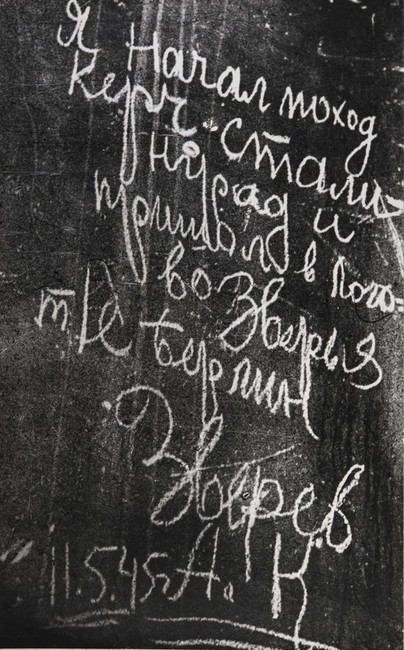 Я начал поход
Керч-стали-
нград и
пришол в Лого-
во Зверья
т. Е берлин
Зверев
11.5.45г А. К